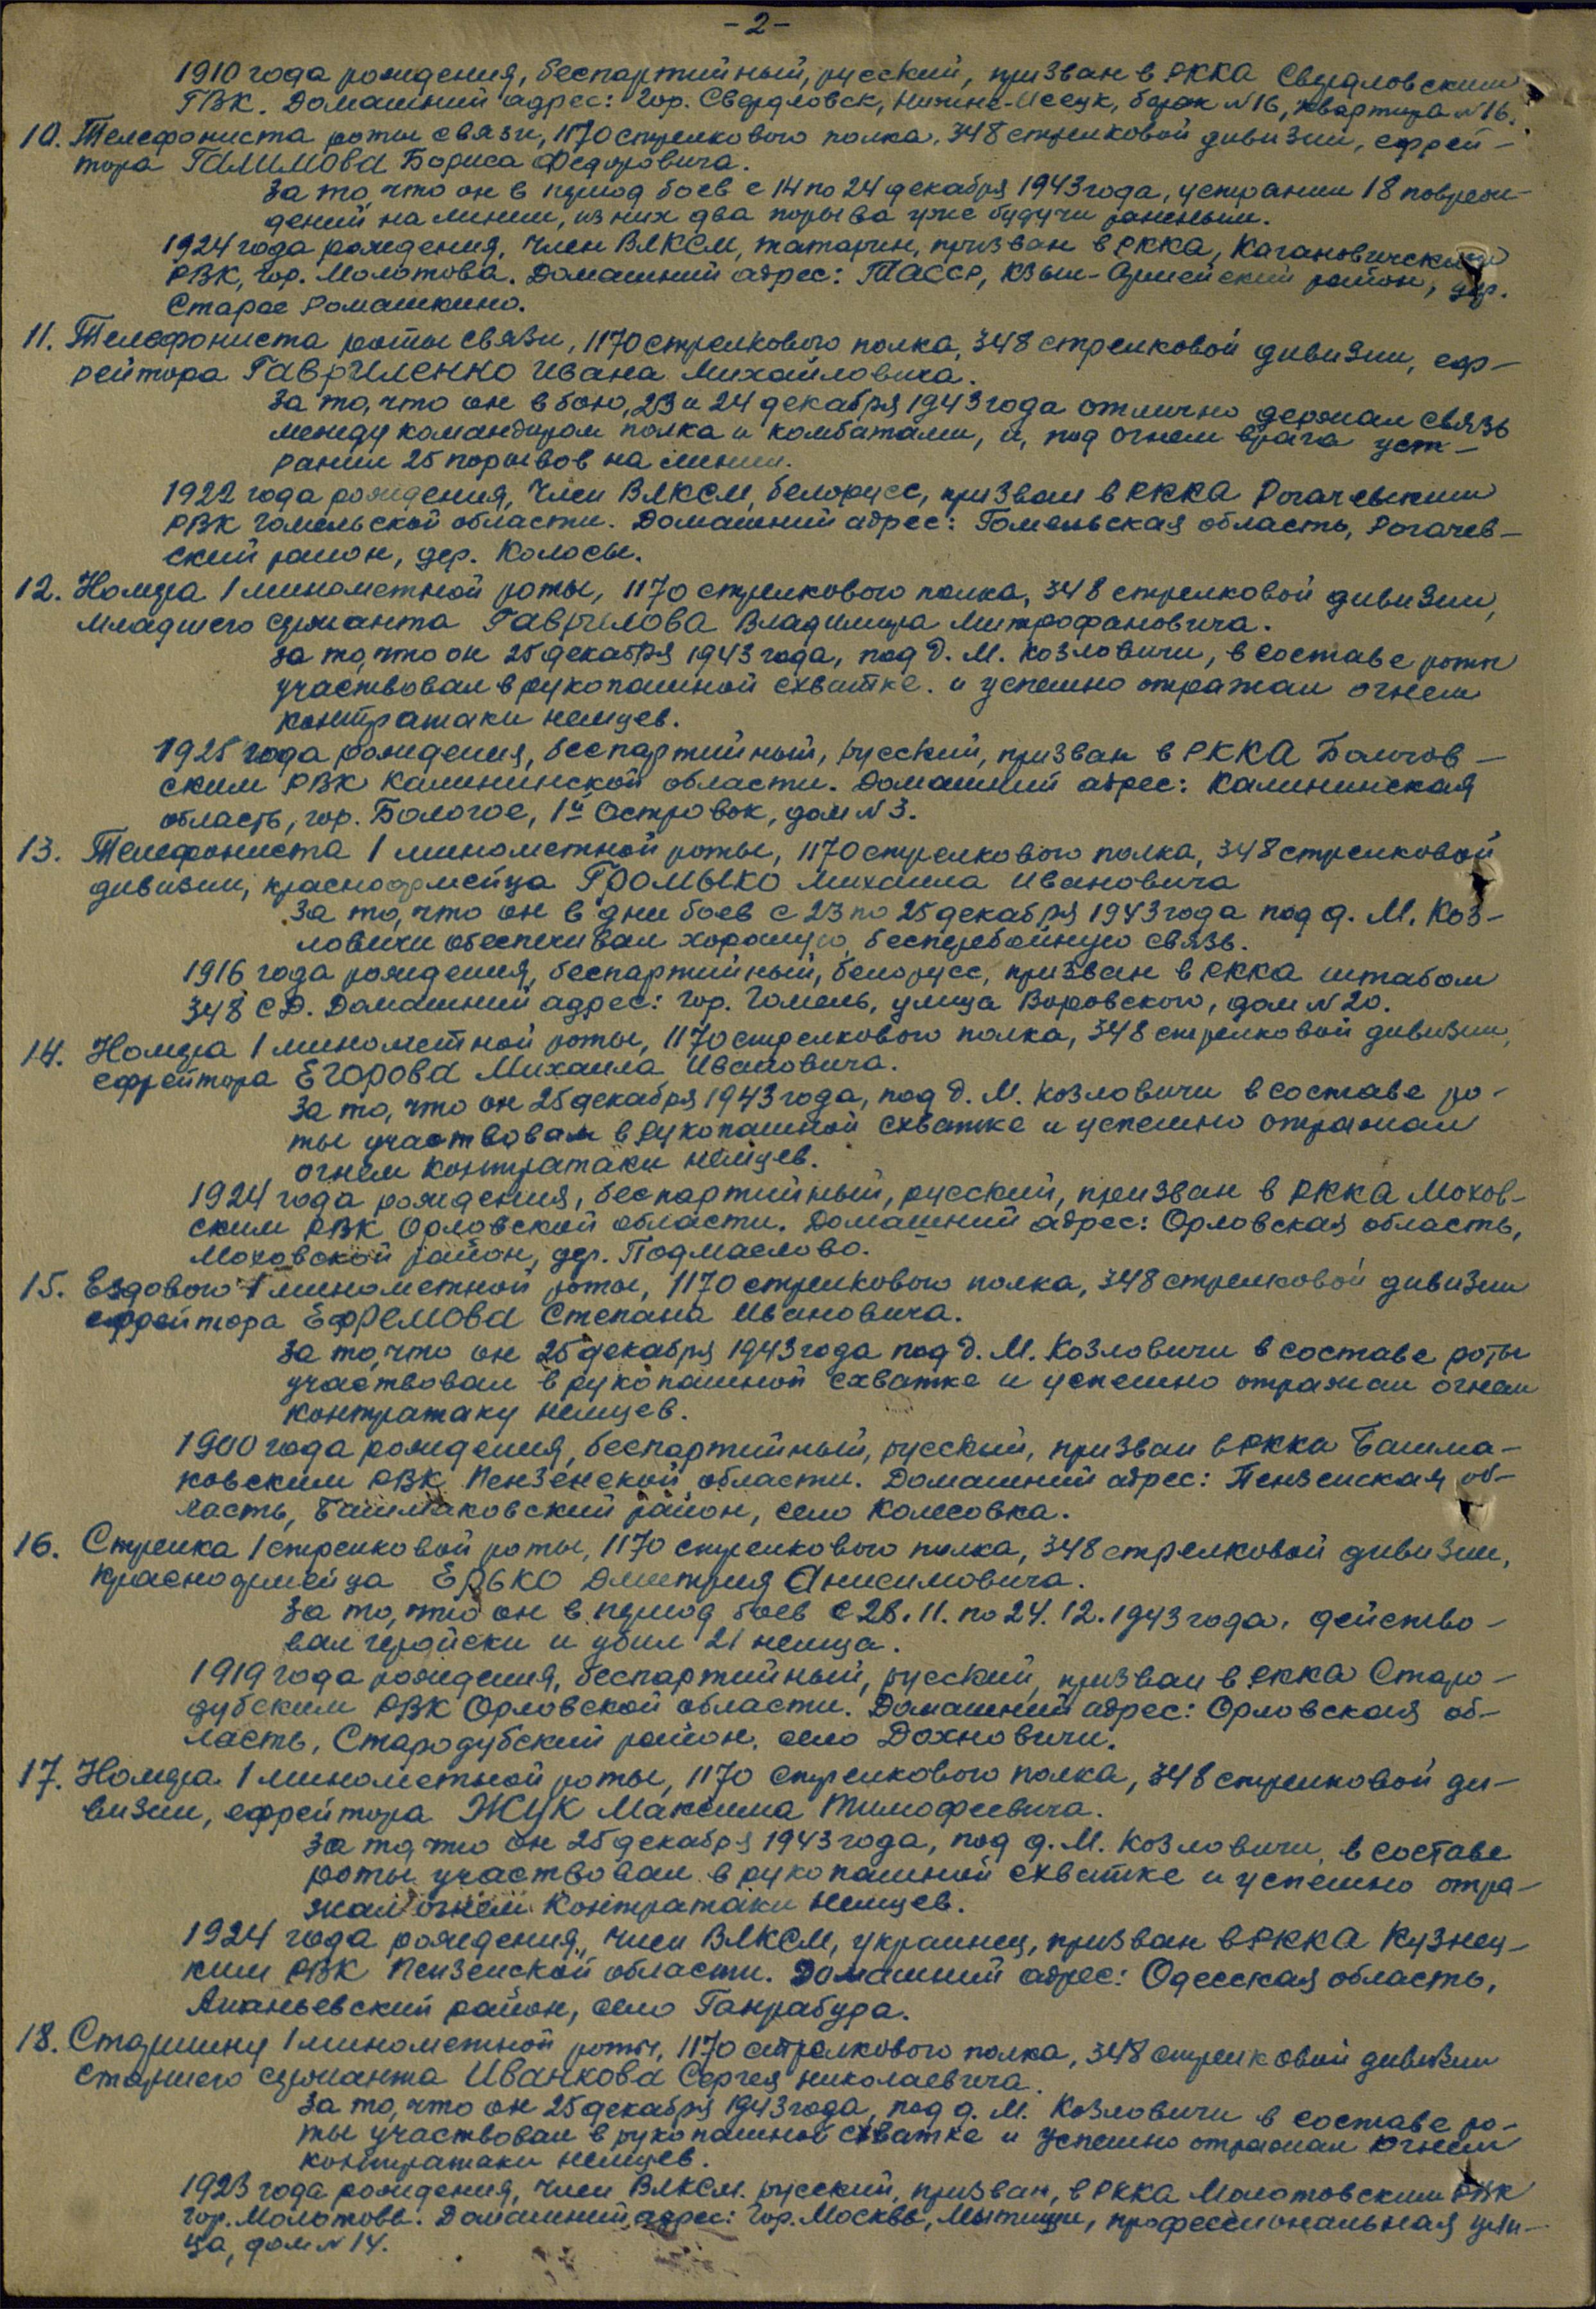 -2-
1910 года рождения, беспартийный, русский, призван в РККА Свердловским
ГВК. Домашний адрес: гор. Свердловск, Нижне-Исецк, барак №16, квартира №16.
10. Телефониста роты связи, 1170 стрелкового полка, 348 стрелковой дивизии, ефрей-
тора Галимова Бориса Федоровича.
За то, что он в период боев с 14 по 24 декабря 1943 года, устранил 18 повреж-
дений на линии, из них два порыва уже будучи раненым.
1924 года рождения, член ВЛКСМ, татарин, призван в РККА, Кагановическим
РВК, гор. Молотова. Домашний адрес: ТАССР, Кзыл-Армейский район, дер.
Старое Ромашкино.
11. Телефониста роты связи, 1170 стрелкового полка, 348 стрелковой дивизии, еф-
рейтора Гавриленко Ивана Михайловича.
За то, что он в бою, 23 и 24 декабря 1943 года отлично держал связь
между командиром полка и комбатами, и, под огнем врага уст-
ранил 25 порывов на линии.
1922 года рождения, член ВЛКСМ, белорусс, призван в РККА Рогачевским
РВК Гомельской области. Домашний адрес: Гомельская область, Рогачев-
ский район, дер. Колосы.
12. Номера 1 минометной роты, 1170 стрелкового полка, 348 стрелковой дивизии,
младшего сержанта Гаврилова Владимира Митрофановича.
За то, что он 25 декабря 1943 года, под д. М. Козловичи, в составе роты
участвовал в рукопашной схватке. и успешно отражал огнем
контратаки немцев.
1925 года рождения, беспартийный, русский, призван в РККА Бологов-
ским РВК Калининской области. Домашний адрес: Калининская
область, гор. Бологое, 1й Островок, дом №3.
13. Телефониста 1 минометной роты, 1170 стрелкового полка, 348 стрелковой
дивизии, красноармейца Громыко Михаила Ивановича
За то, что он в дни боев с 23 по 25 декабря 1943 года под д. М. Коз-
ловичи обеспечивал хорошую, бесперебойную связь.
1916 года рождения, беспартийный, белорусс, призван в РККА штабом
348 СД. Домашний адрес: гор. Гомель, улица Воровского, дом №20.
14. Номера 1 минометной роты, 1170 стрелкового полка, 348 стрелковой дивизии,
ефрейтора Егорова Михаила Ивановича.
За то, что он 25 декабря 1943 года, под д. М. Козловичи в составе ро-
ты участвовал в рукопашной схватке и успешно отражал
огнем контратаки немцев.
1924 года рождения, беспартийный, русский, призван в РККА Мохов-
ским РВК Орловской области. Домашний адрес: Орловская область,
Моховской район, дер. Подмаслово.
15. Ездового 1 минометной роты, 1170 стрелкового полка, 348 стрелковой дивизии
ефрейтора Ефремова Степана Ивановича.
За то, что он 25 декабря 1943 года под д. М. Козловичи в составе роты
участвовал в рукопашной схватке и успешно отражал огнем
контратаку немцев.
1900 года рождения, беспартийный, русский, призван в РККА Башма-
ковским РВК Пензенской области. Домашний адрес: Пензенская об-
ласть, Башмаковский район, село Колесовка.
16. Стрелка 1 стрелковой роты, 1170 стрелкового полка, 348 стрелковой дивизии,
красноармейца Ерько Дмитрия Анисимовича.
За то, что он в период боев с 28.11. по 24.12.1943 года, действо-
вал геройски и убил 21 немца.
1919 года рождения, беспартийный, русский, призван в РККА Старо-
дубским РВК Орловской области. Домашний адрес: Орловская об-
ласть, Стародубский район, село Дохновичи.
17. Номера 1 минометной роты, 1170 стрелкового полка, 348 стрелковой ди-
визии, ефрейтора Жук Максима Тимофеевича.
За то, что он 25 декабря 1943 года, под д. М. Козловичи, в составе
роты участвовал в рукопашной схватке и успешно отра-
жал огнем контратаки немцев.
1924 года рождения, член ВЛКСМ, украинец, призван в РККА Кузнец-
ким РВК Пензенской области. Домашний адрес: Одесская область,
Ананьевский район, село Ганрабура.
18. Старшину 1 минометной роты, 1170 стрелкового полка, 348 стрелковой дивизии
старшего сержанта Иванкова Сергея Николаевича.
За то, что он 25 декабря 1943 года, под д. М. Козловичи в составе ро-
ты участвовал в рукопашной схватке и успешно отражал огнем
контратаки немцев.
1923 года рождения, член ВЛКСМ. русский, призван, в РККА Молотовским РВК
гор. Молотова. Домашний адрес: гор. Москва, Мытищи, профессиональная ули-
ца, дом №14.